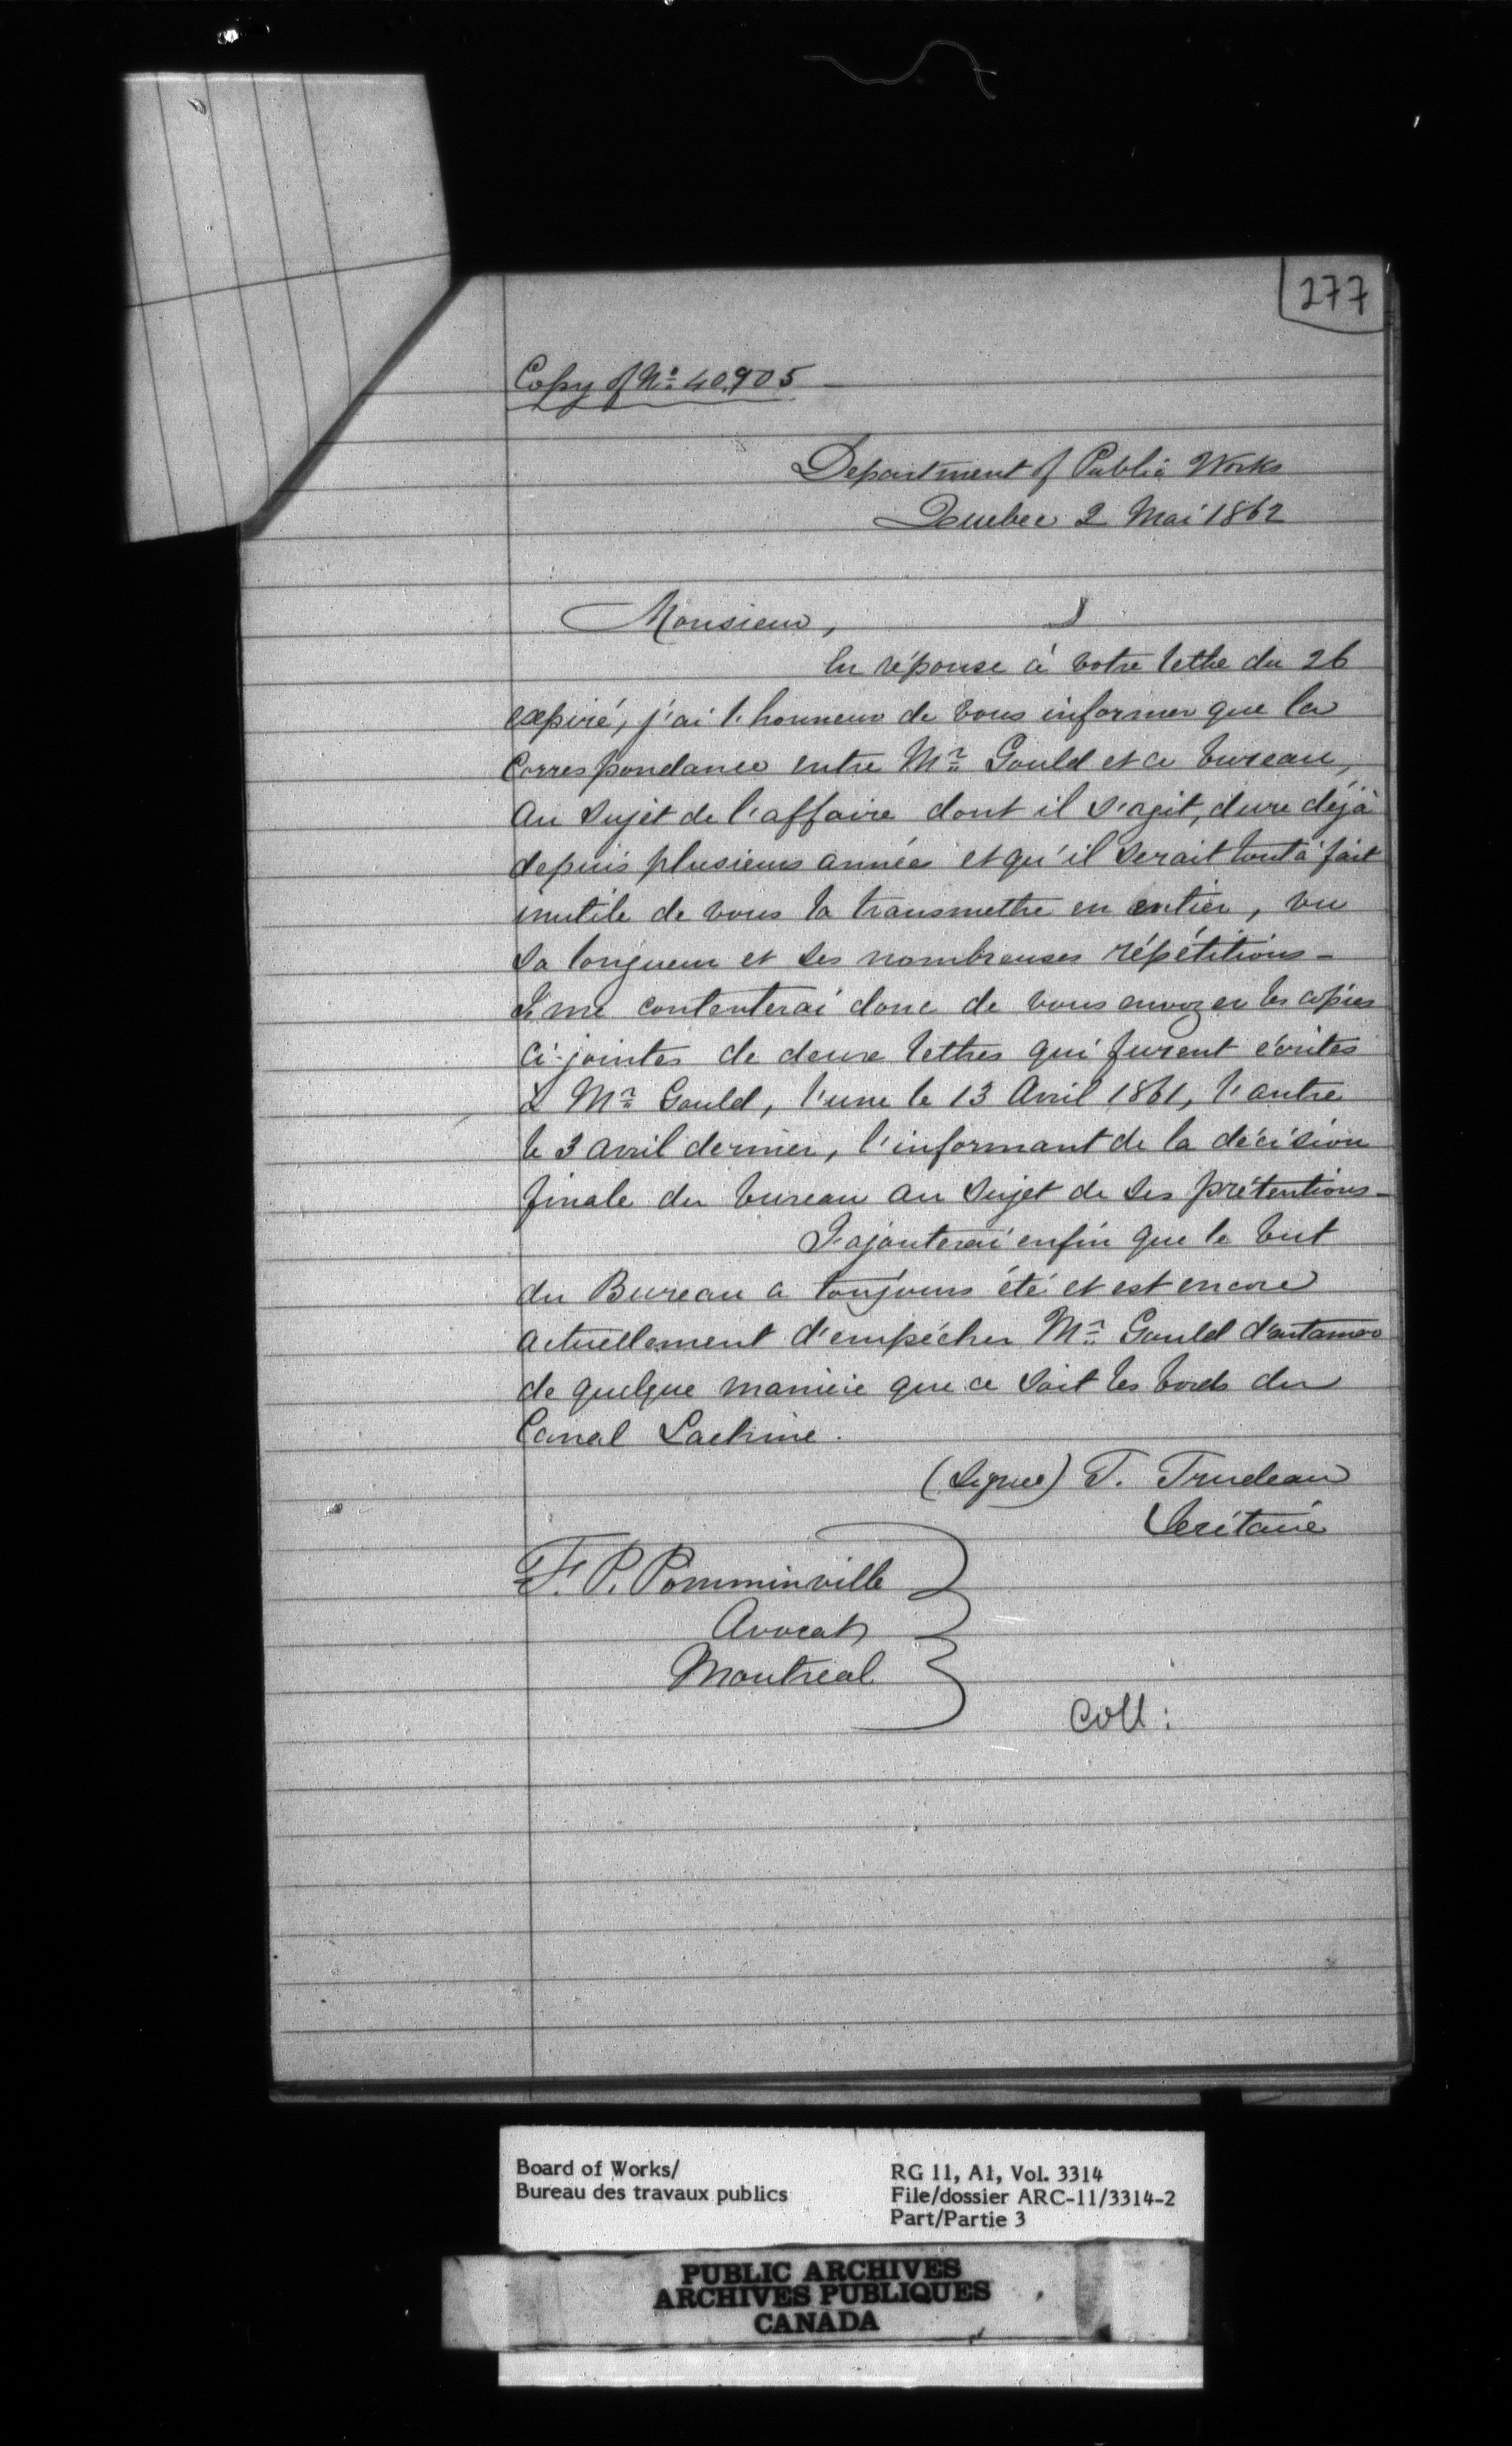 277
Copy of No 40,905
Department of Public Works
Quebec 2 Mai 1862
Monsieur,
En réponse à votre lettre du 26
expiré, j'ai l'honneur de vous informer que la
Correspondance entre Mr Gould et ce bureau,
au sujet de l'affaire dont il s'agit, dure déjà
depuis plusieurs années et qu'il serait tout à fait
inutile de vous la transmettre en entier, vu
sa longueur et ses nombreuses répétitions -
Je me contenterai donc de vous envoyer les copies
ci-jointes de deux lettres qui furent écrites
à Mr Gould, l'une le 13 Avril 1861, l'autre
le 3 avril dernier, l'informant de la décision
finale du bureau au sujet de ses prétentions -
J'ajouterai enfin que le but
du Bureau a toujours été et est encore
actuellement d'empêcher Mr Gould d'entamer
de quelque manière que ce soit les bords du
Canal Lachine.
(Signé) T. Trudeau
Secrétaire
F. P. Pomminville
Avocat
Montreal
Coll:
Board of Works/
Bureau des travaux publics
RG 11, A1, Vol. 3314
File/dossier ARC-11/3314-2
Part/Partie 3
PUBLIC ARCHIVES
ARCHIVES PUBLIQUES
CANADA